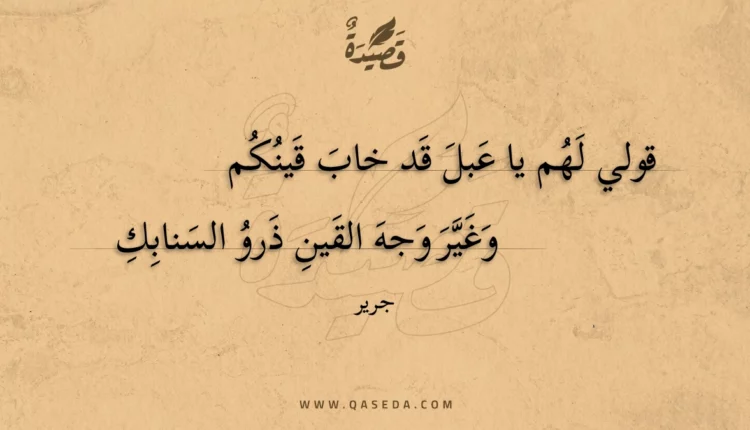 قَصِيدَةٌ
قولي لَهُم يا عَبلَ قَد خابَ قَينُكُم
وَغَيَّرَ وَجهَ القَينِ ذَروُ السَنابِكِ
جرير
WWW.QASEDA.COM